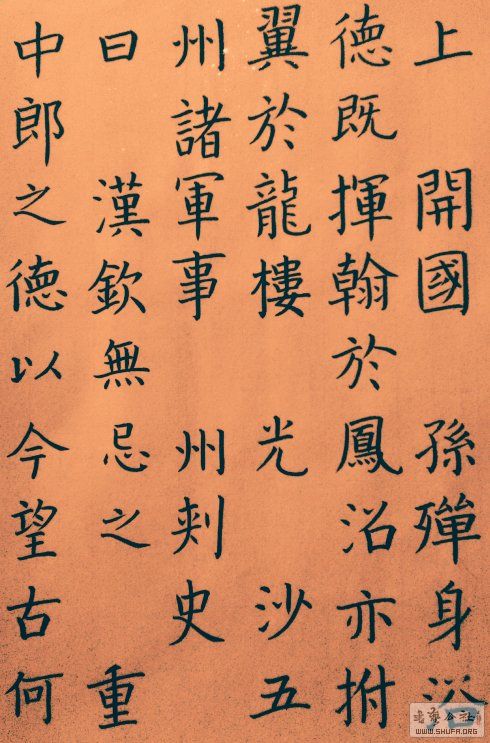 上 開國 孫殫身浴
德既揮翰於鳳沼亦拊
翼於龍樓 光 沙五
州諸軍事 州刺史
曰 漢欽無忌之 重
中郎之德以今望古何
WWW.SHUFA.ORG